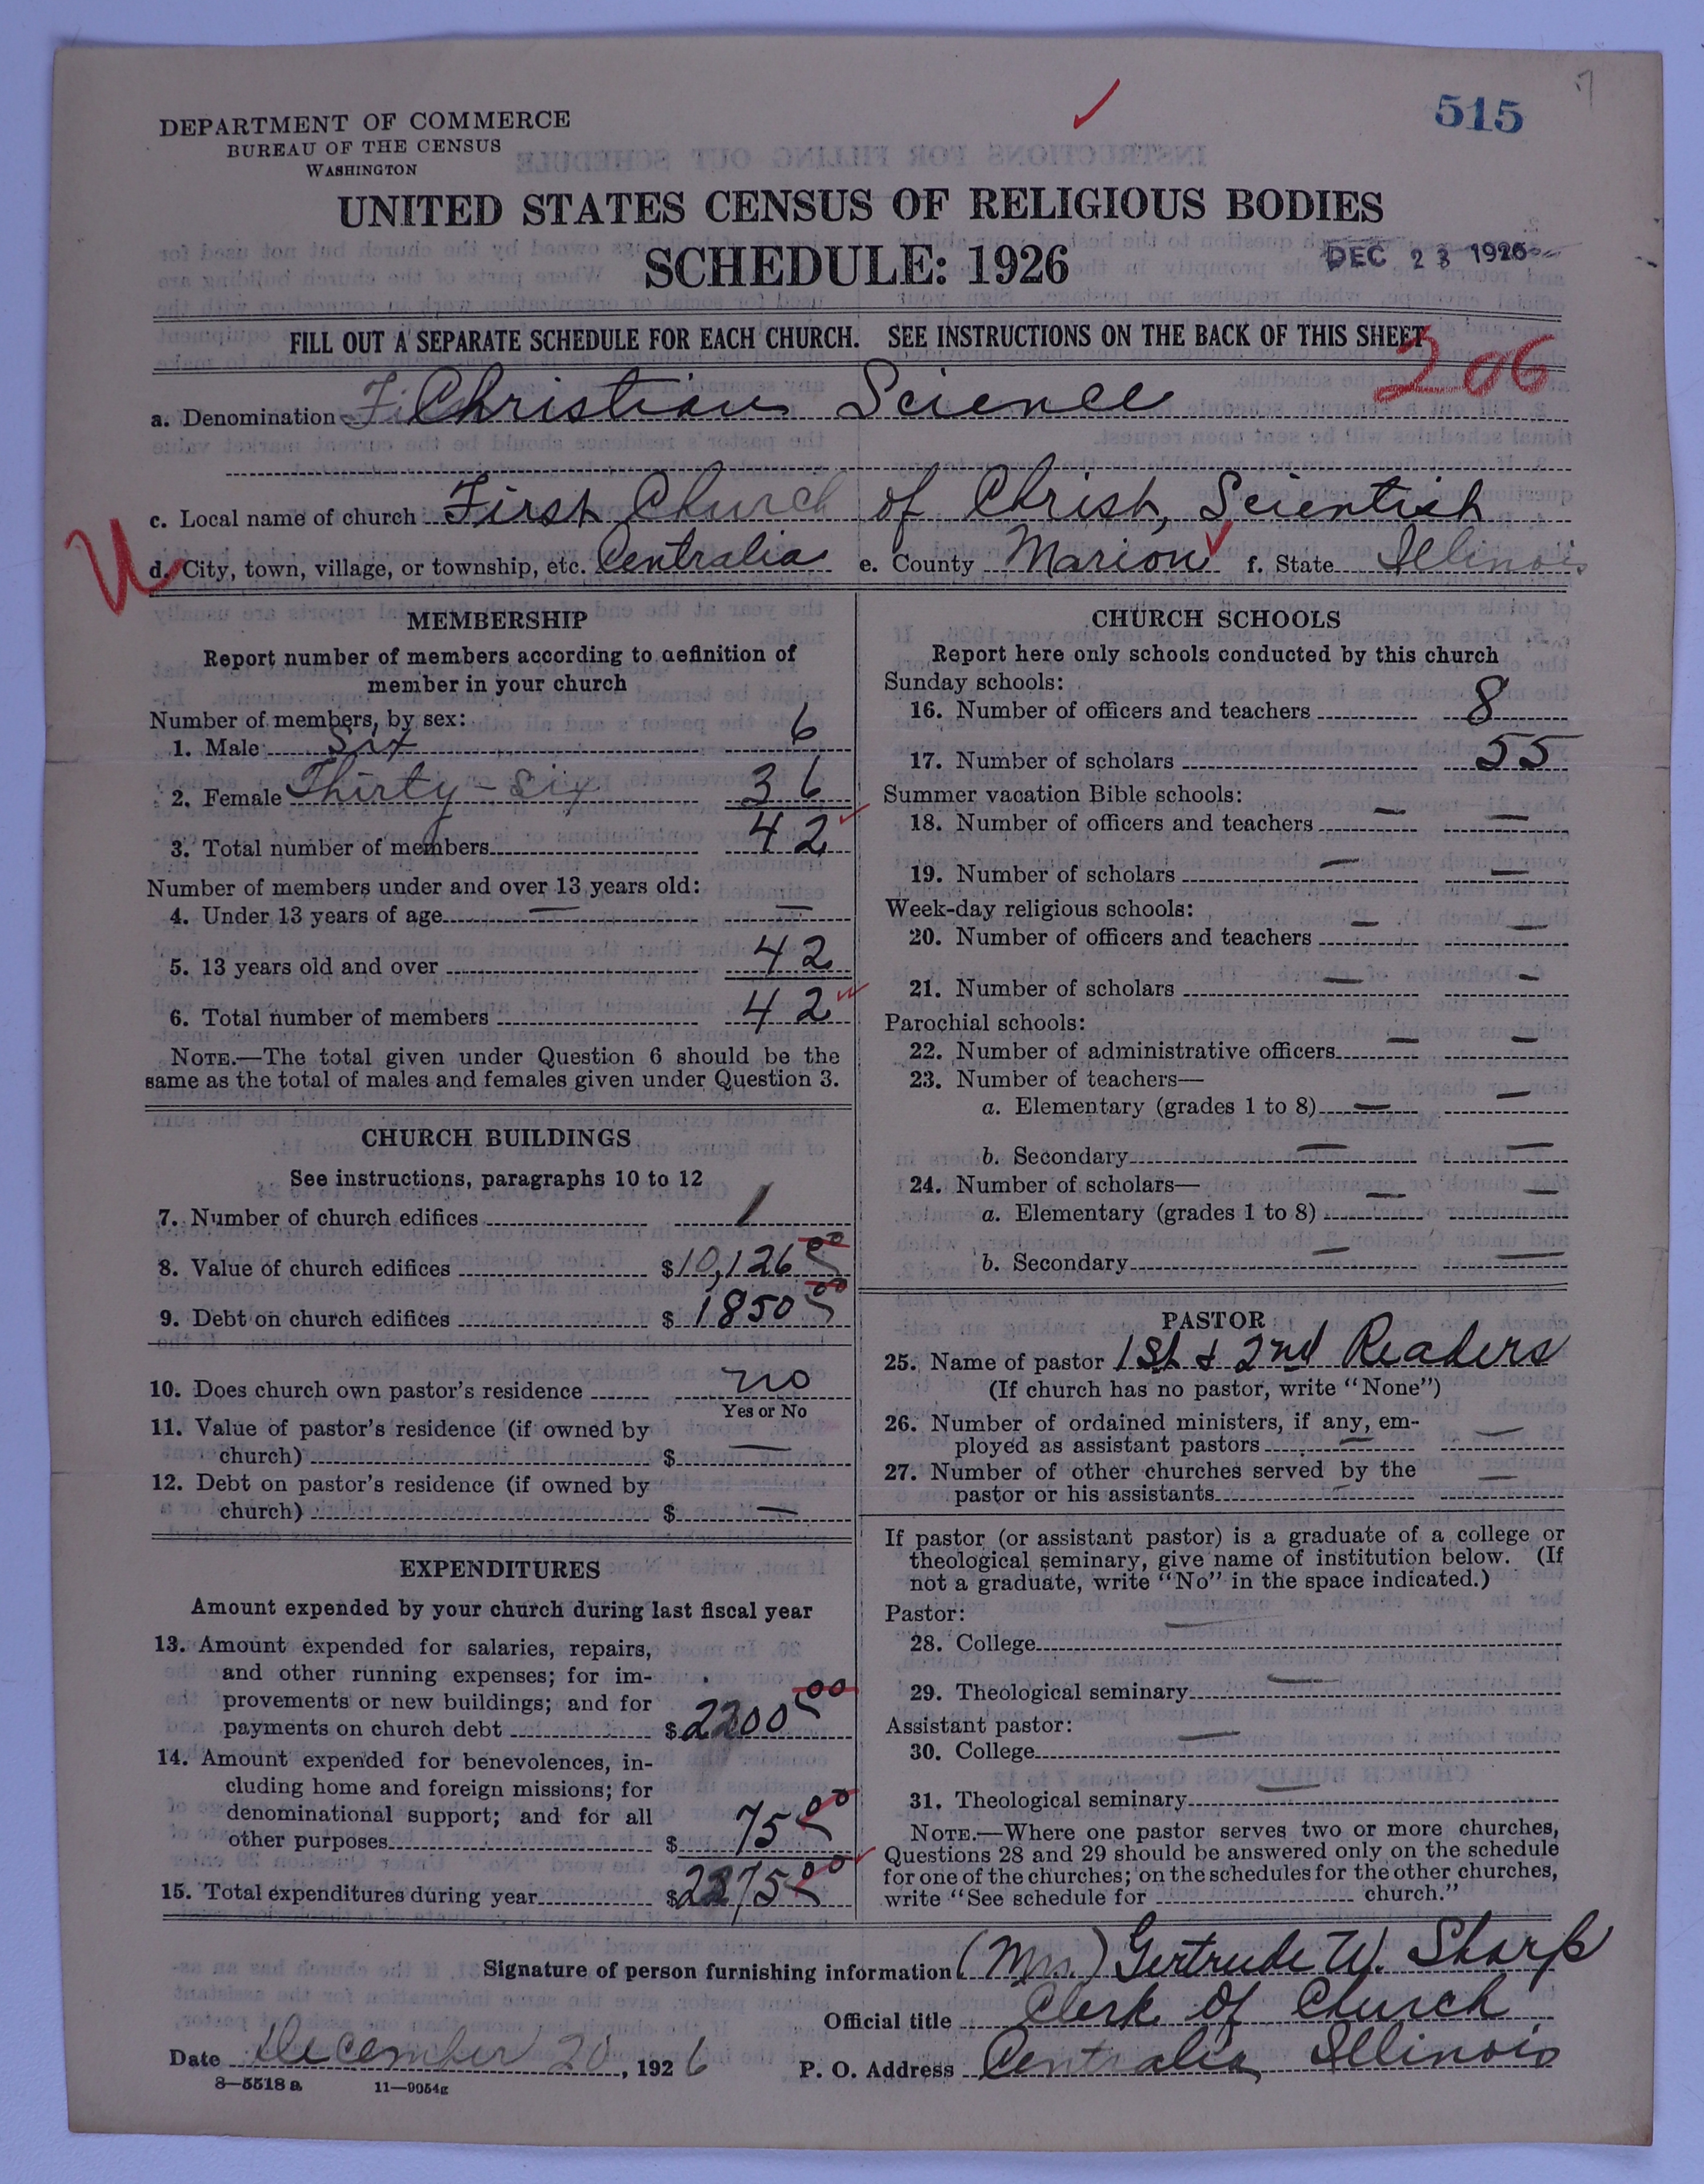 515
DEPARTMENT OF COMMERCE
BUREAU OF THE CENSUS
WASHINGTON
UNITED STATES CENSUS OF RELIGIOUS BODIES
SCHEDULE: 1926
DEC 23 1926
FILL OUT A SEPARATE SCHEDULE FOR EACH CHURCH. SEE INSTRUCTIONS ON THE BACK OF THIS SHEET
206
a. Denomination Christian Science
c. Local name of church First Church of Christ, Scientist
U
d. City, town, village, or township, etc. Centralia e. County Marion f. State Illinois
MEMBERSHIP
Report number of members according to definition of
member in your church
Number of members, by sex:
1. Male Six 6
2. Female Thirty-Six 36
3. Total number of members 42
Number of members under and over 13 years old:
4. Under 13 years of age — —
5. 13 years old and over 42
6. Total number of members 42
NOTE.—The total given under Question 6 should be the
same as the total of males and females given under Question 3.
CHURCH BUILDINGS
See instructions, paragraphs 10 to 12
7. Number of church edifices 1
8. Value of church edifices $10,126 00
9. Debt on church edifices $ 1850 00
10. Does church own pastor's residence no
Yes or No
11. Value of pastor's residence (if owned by
church) $ —
12. Debt on pastor's residence (if owned by
church) $ —
EXPENDITURES
Amount expended by your church during last fiscal year
13. Amount expended for salaries, repairs,
and other running expenses; for im-
provements or new buildings; and for
payments on church debt $2200 00
14. Amount expended for benevolences, in-
cluding home and foreign missions; for
denominational support; and for all
other purposes $ 75 00
15. Total expenditures during year $2275 00
CHURCH SCHOOLS
Report here only schools conducted by this church
Sunday schools:
16. Number of officers and teachers 8
17. Number of scholars 55
Summer vacation Bible schools:
18. Number of officers and teachers — —
19. Number of scholars — —
Week-day religious schools:
20. Number of officers and teachers — —
21. Number of scholars — —
Parochial schools:
22. Number of administrative officers — —
23. Number of teachers—
a. Elementary (grades 1 to 8) — —
b. Secondary — —
24. Number of scholars— — —
a. Elementary (grades 1 to 8)
b. Secondary — —
PASTOR
25. Name of pastor 1st & 2nd Readers
(If church has no pastor, write "None")
26. Number of ordained ministers, if any, em-
ployed as assistant pastors — —
27. Number of other churches served by the
pastor or his assistants — —
If pastor (or assistant pastor) is a graduate of a college or
theological seminary, give name of institution below. (If
not a graduate, write "No" in the space indicated.)
Pastor:
28. College —
29. Theological seminary —
Assistant pastor:
30. College —
31. Theological seminary —
NOTE.—Where one pastor serves two or more churches,
Questions 28 and 29 should be answered only on the schedule
for one of the churches; on the schedules for the other churches,
write "See schedule for church."
Signature of person furnishing information (Mrs.) Gertrude W. Sharp
Official title Clerk of Church
Date December 20, 1926 P. O. Address Centralia Illinois
8—5518 a 11—9054g